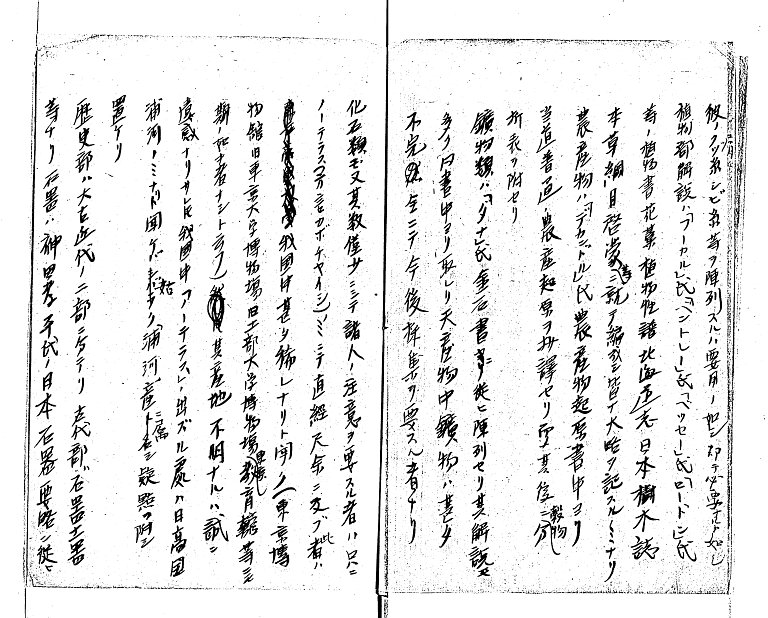 彼ノクス糸シビ糸等ヲ陳列スルハ要用ノ如シ却テ必要ナキカ如シ
植物部解説ハ「フーカル」氏「ベントレー」氏「ベッセー」氏「ロートン」氏
等ノ植物書花葉植物性譜北海道志日本樹木誌
本草綱目啓蒙等ニ就テ編成シ皆大略ヲ記スルノミナリ
農産物ハ「デカンドル」氏農産物起原書中ヨリ
当道普通ノ農産起原ヲ抄譯セリ 其後ニ穀物分
析表ヲ附セリ
鑛物類ハ「ダナ」氏金石書ニ従ヒ陳列セリ其解説モ
多ク同書中ヨリ取レリ天産物中鑛物ハ甚タ
不完全ニテ今後採集ヲ要スル者ナリ
化石類モ又其数僅少ニシテ諸人ノ注意ヲ要スル者ハ只ニ
ノーテラス(方言カボチャイシ)ノミニテ直経尺余ニ及ブ者ハ此
我国中甚タ稀レナリト聞ク(東京博
物館旧東京大学博物場旧工部大学博物場教育館等ニモ
類ノ如キ者ナシト云フ)其産地不明ナルハ誠ニ
遺感ナリサレ氏我國中「ノーテラス」ノ出ズル處ハ日高国
浦河ノミナリト聞ケバ姑ク浦河産ト名シ疑點ヲ附シ
置ケリ
歴史部ハ太古近代ノ二部ニ分テリ古代部ハ石器土器
等ナリ石器ハ神田孝平氏ノ日本石器要略ニ従ヒ